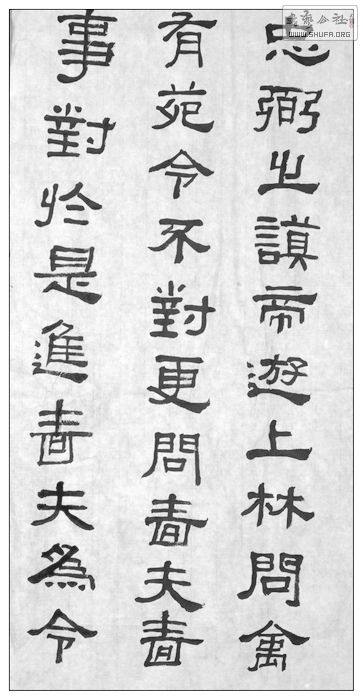 忠弼之謨帝遊上林問禽
有苑令不對更問嗇夫嗇
事對於是進嗇夫為令
WWW.SHUFA.ORG